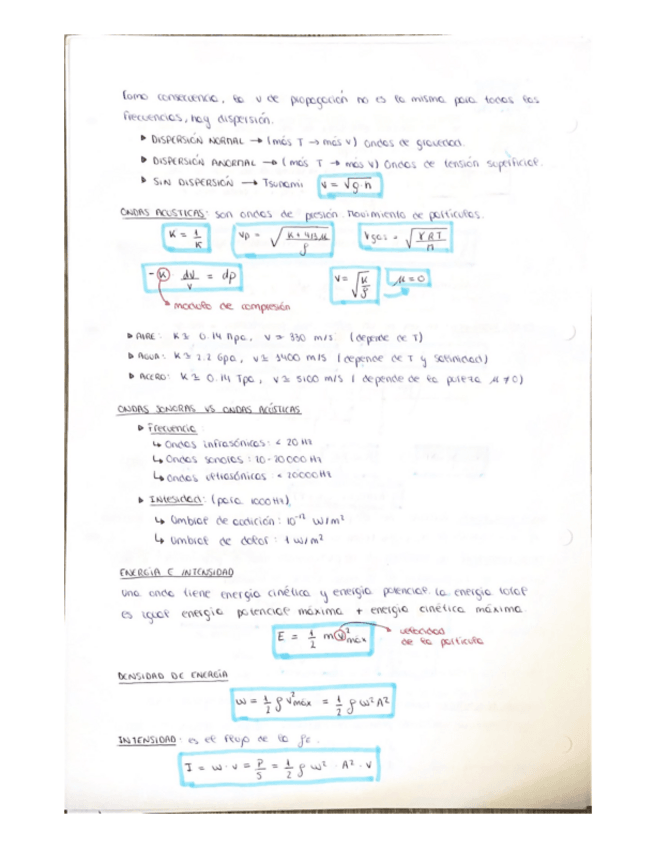 Como consecuencia, la v de propagación no es la misma para todas las
frecuencias, hay dispersión.
▸ DISPERSIÓN NORMAL → (más T → más v) ondas de gravedad.
▸ DISPERSIÓN ANORMAL → (más T → más v) Ondas de tensión superficial.
▸ SIN DISPERSIÓN → Tsunami v = √g·h
ONDAS ACUSTICAS: son ondas de presión. Movimiento de partículas.
K = 1/K vp = √(K + 4/3 μ / ρ) vgas = √(γRT / n)
-K dv/v = dp v = √(K/ρ) μ = 0
modulo de compresión
▸ AIRE: K ≅ 0.14 Mpa, v ≅ 330 m/s (depende de T)
▸ AGUA: K ≅ 2.2 Gpa, v ≅ 1400 m/s (depende de T y salinidad)
▸ ACERO: K ≅ 0.14 Tpa, v ≅ 5100 m/s (depende de la pureza μ ≠ 0)
ONDAS SONORAS VS ONDAS ACÚSTICAS
▸ Frecuencia
↳ Ondas infrasónicas: < 20 Hz
↳ Ondas sonoras: 20-20000 Hz
↳ Ondas ultrasónicas: < 20000 Hz
▸ Intesidad: (para 1000 Hz)
↳ Umbral de audición: 10⁻¹² W/m²
↳ Umbral de dolor: 1 W/m²
ENERGIA E INTENSIDAD
Una onda tiene energía cinética y energía potencial. La energía total
es igual energía potencial máxima + energía cinética máxima.
E = 1/2 m v²máx velocidad
de la partícula
DENSIDAD DE ENERGÍA
w = 1/2 ρ v²máx = 1/2 ρ w² A²
INTENSIDAD: es el flujo de la
I = w · v = P/S = 1/2 ρ w² · A² · v